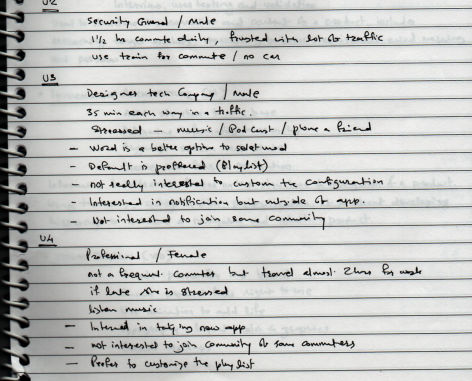 U2
Security Guard / Male
1 1/2 hr commute daily, frusted with lot of traffic
use train for commute / no car
U3
Designer tech Company / Male
35 min each way in a traffic.
Stressed - music / Podcast / phone a friend
- Word is a better option to select mod
- Default is preffered (Playlist)
- not really interested to custom the configuration
- Interested in notification but outside of app.
- Not interested to join some community
U4
Professional / Female
not a frequent commuter but travel almost 2hrs for work
if late she is stressed
listen music
- Interested in trying new app
- not interested to join community of same commuters
- Prefer to customize the play list